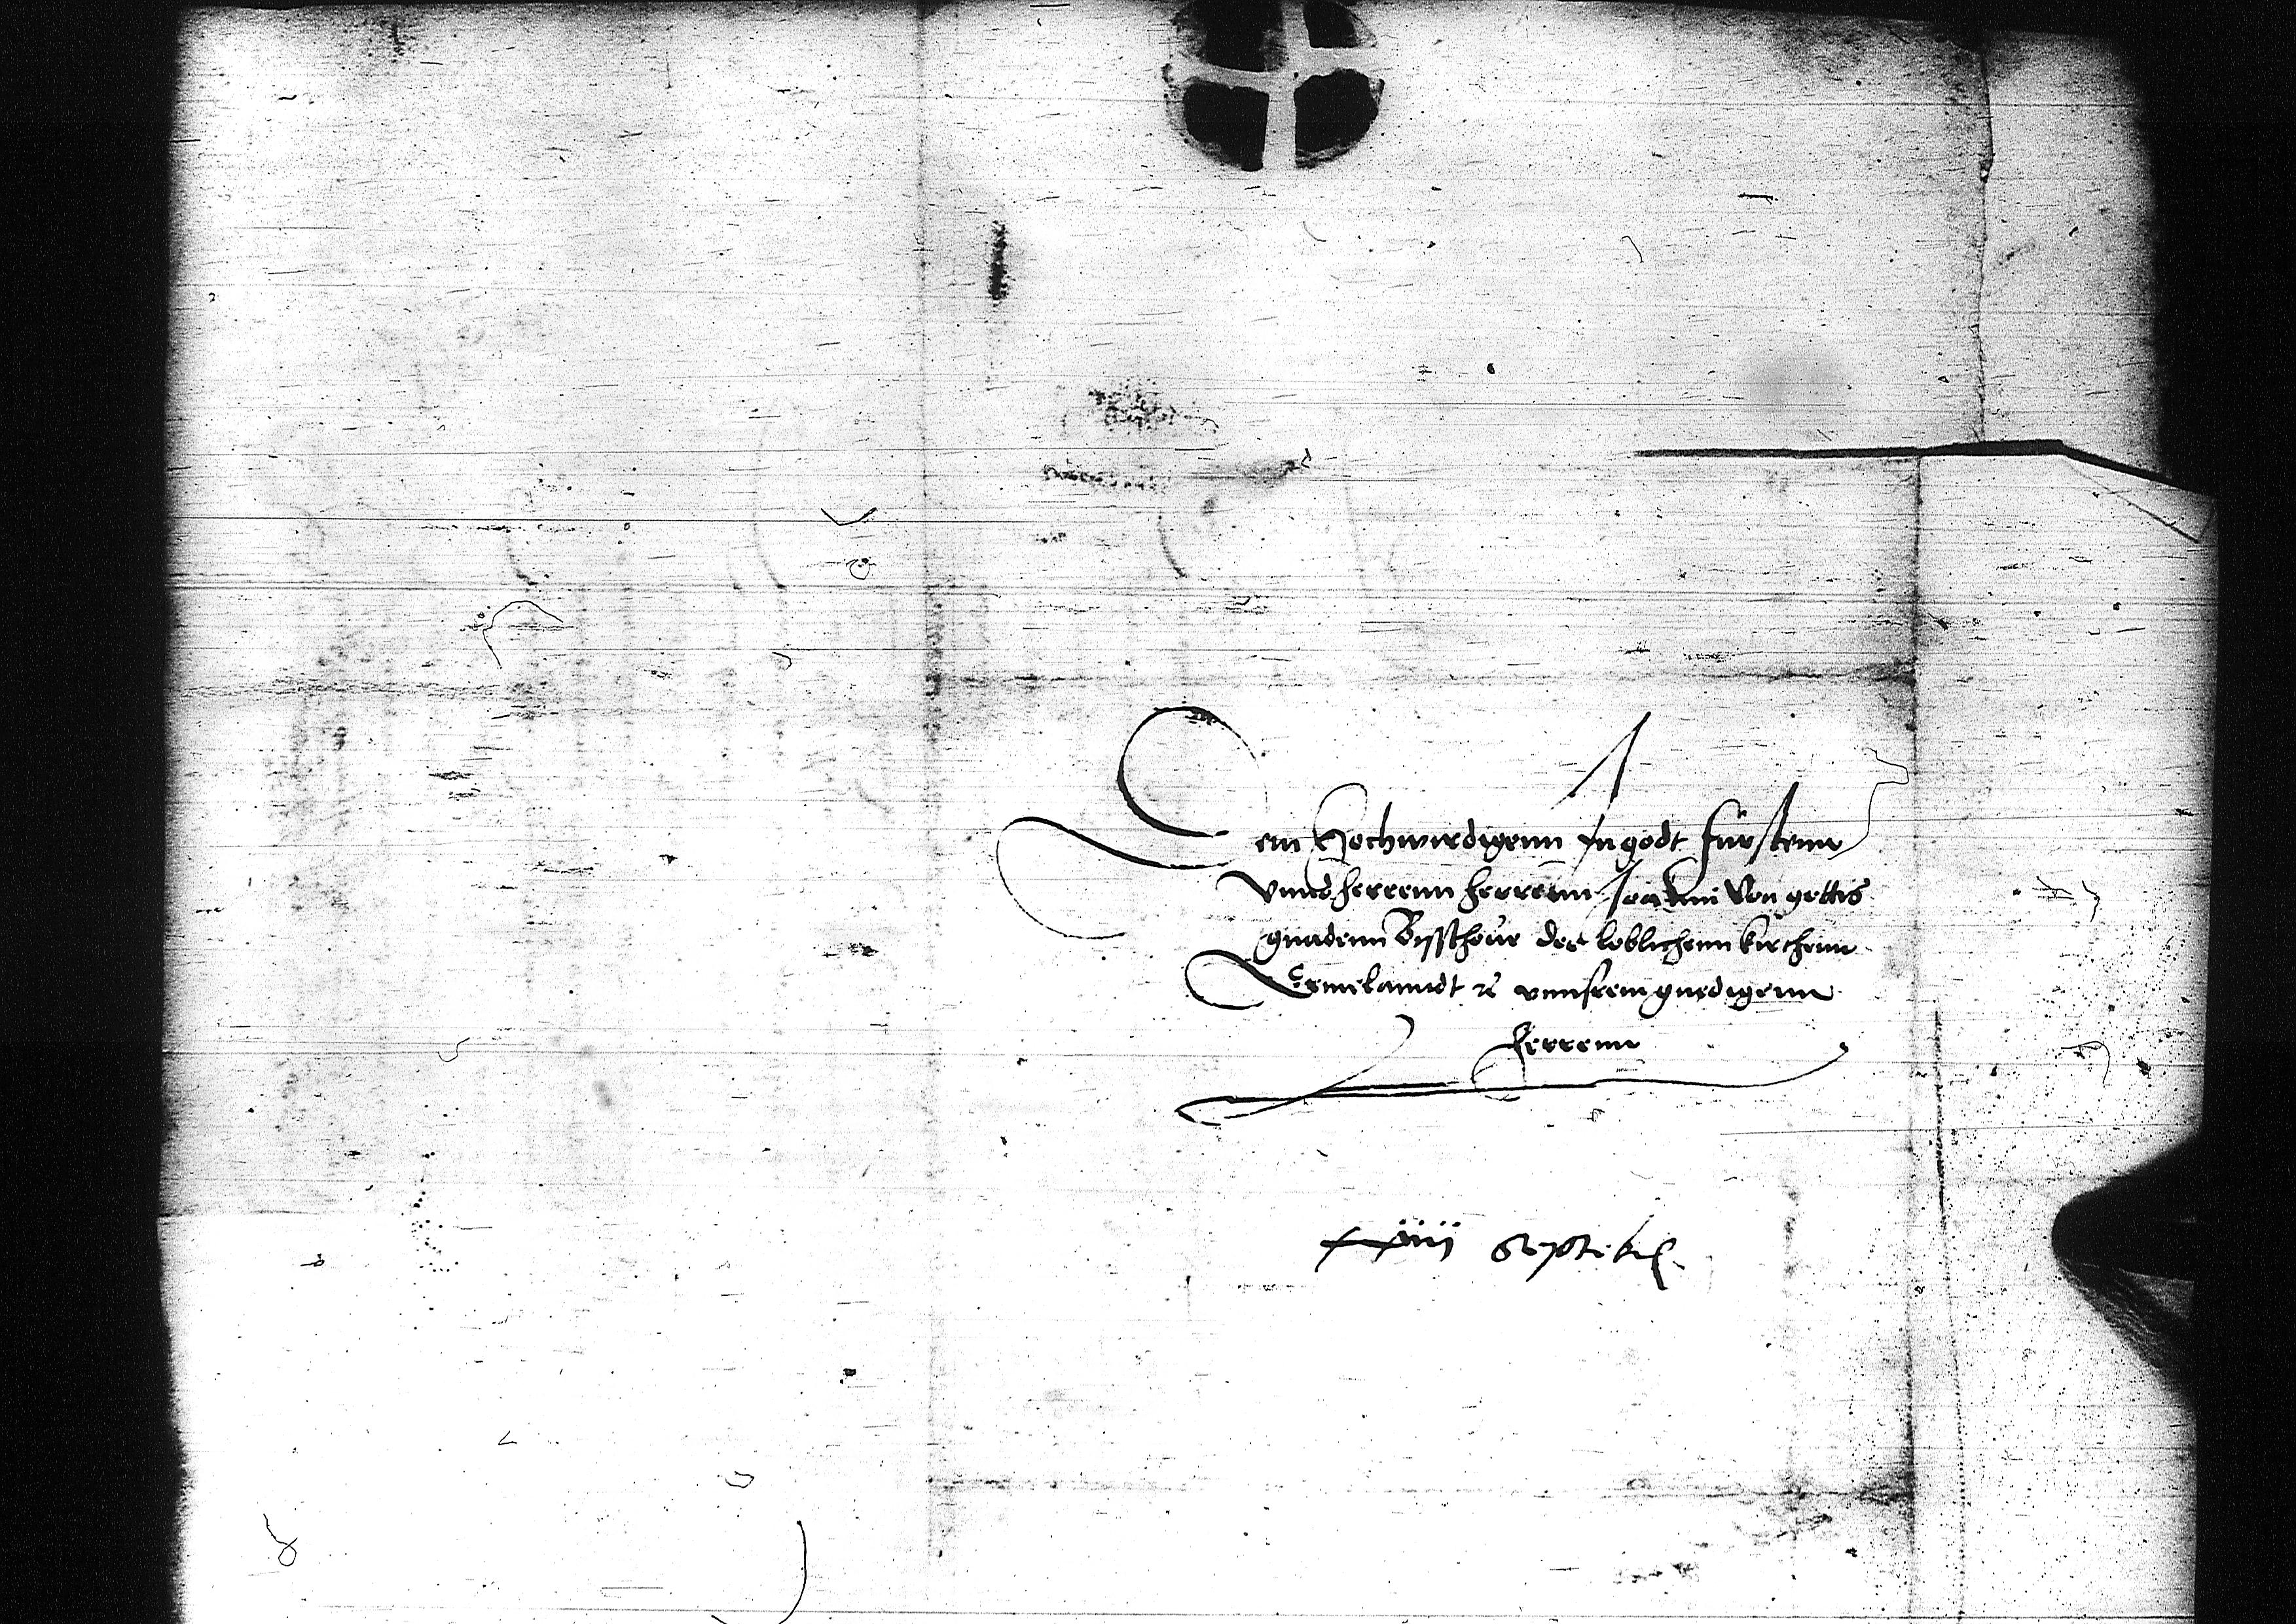 Dem Hochwirdigenn In godt fürstenn
vnnd herrenn herrenn von gottis
gnadenn Bisschoue der loblichenn kirchenn
Ermelanndt &c vnnserm gnedigenn
herrenn
xxiiii Septeb